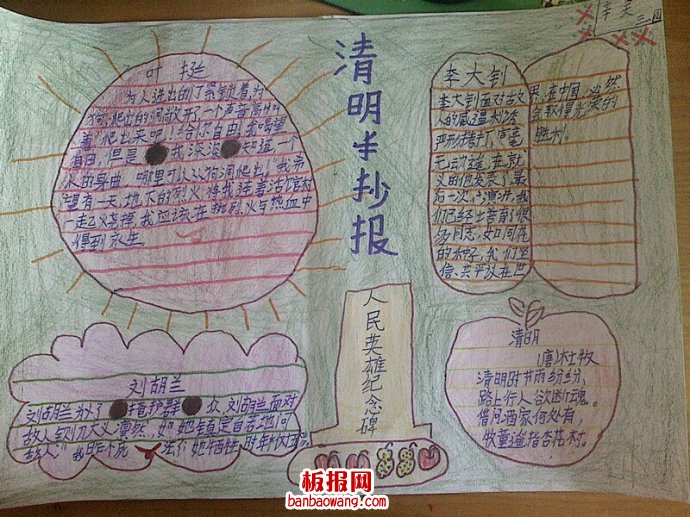 清明手抄报
叶挺
为人进出的门紧锁着为
狗爬出的洞敞开了一个声音高叫
着"爬出来吧!给你自由"我渴望
自由,但是我深深知道一个
人的身曲哪里可以从狗洞爬出!"我希
望有一天,地下的烈火将我连着活棺材
一起烧掉,我应该在热烈火与热血中
得到永生。
李大钊
李大钊面对敌
人的威逼利诱
严刑拷打,毫
无动遥,在就
义的他发表了最
后一次演讲,我
们已经培育了很
多同志,如同花
的种子,我们坚
信,共产党在世
界、在中国必然
会取得光荣的
胜利。
刘胡兰
刘胡兰为了掩护群众,刘胡兰面对
敌人
敌人"我咋个死法?"她牺牲时年
人民英雄纪念碑
清明
(唐)杜牧
清明时节雨纷纷,
路上行人欲断魂。
借月酒家何处有
牧童遥指杏花村。
三、四
板报网
banbaowang.com